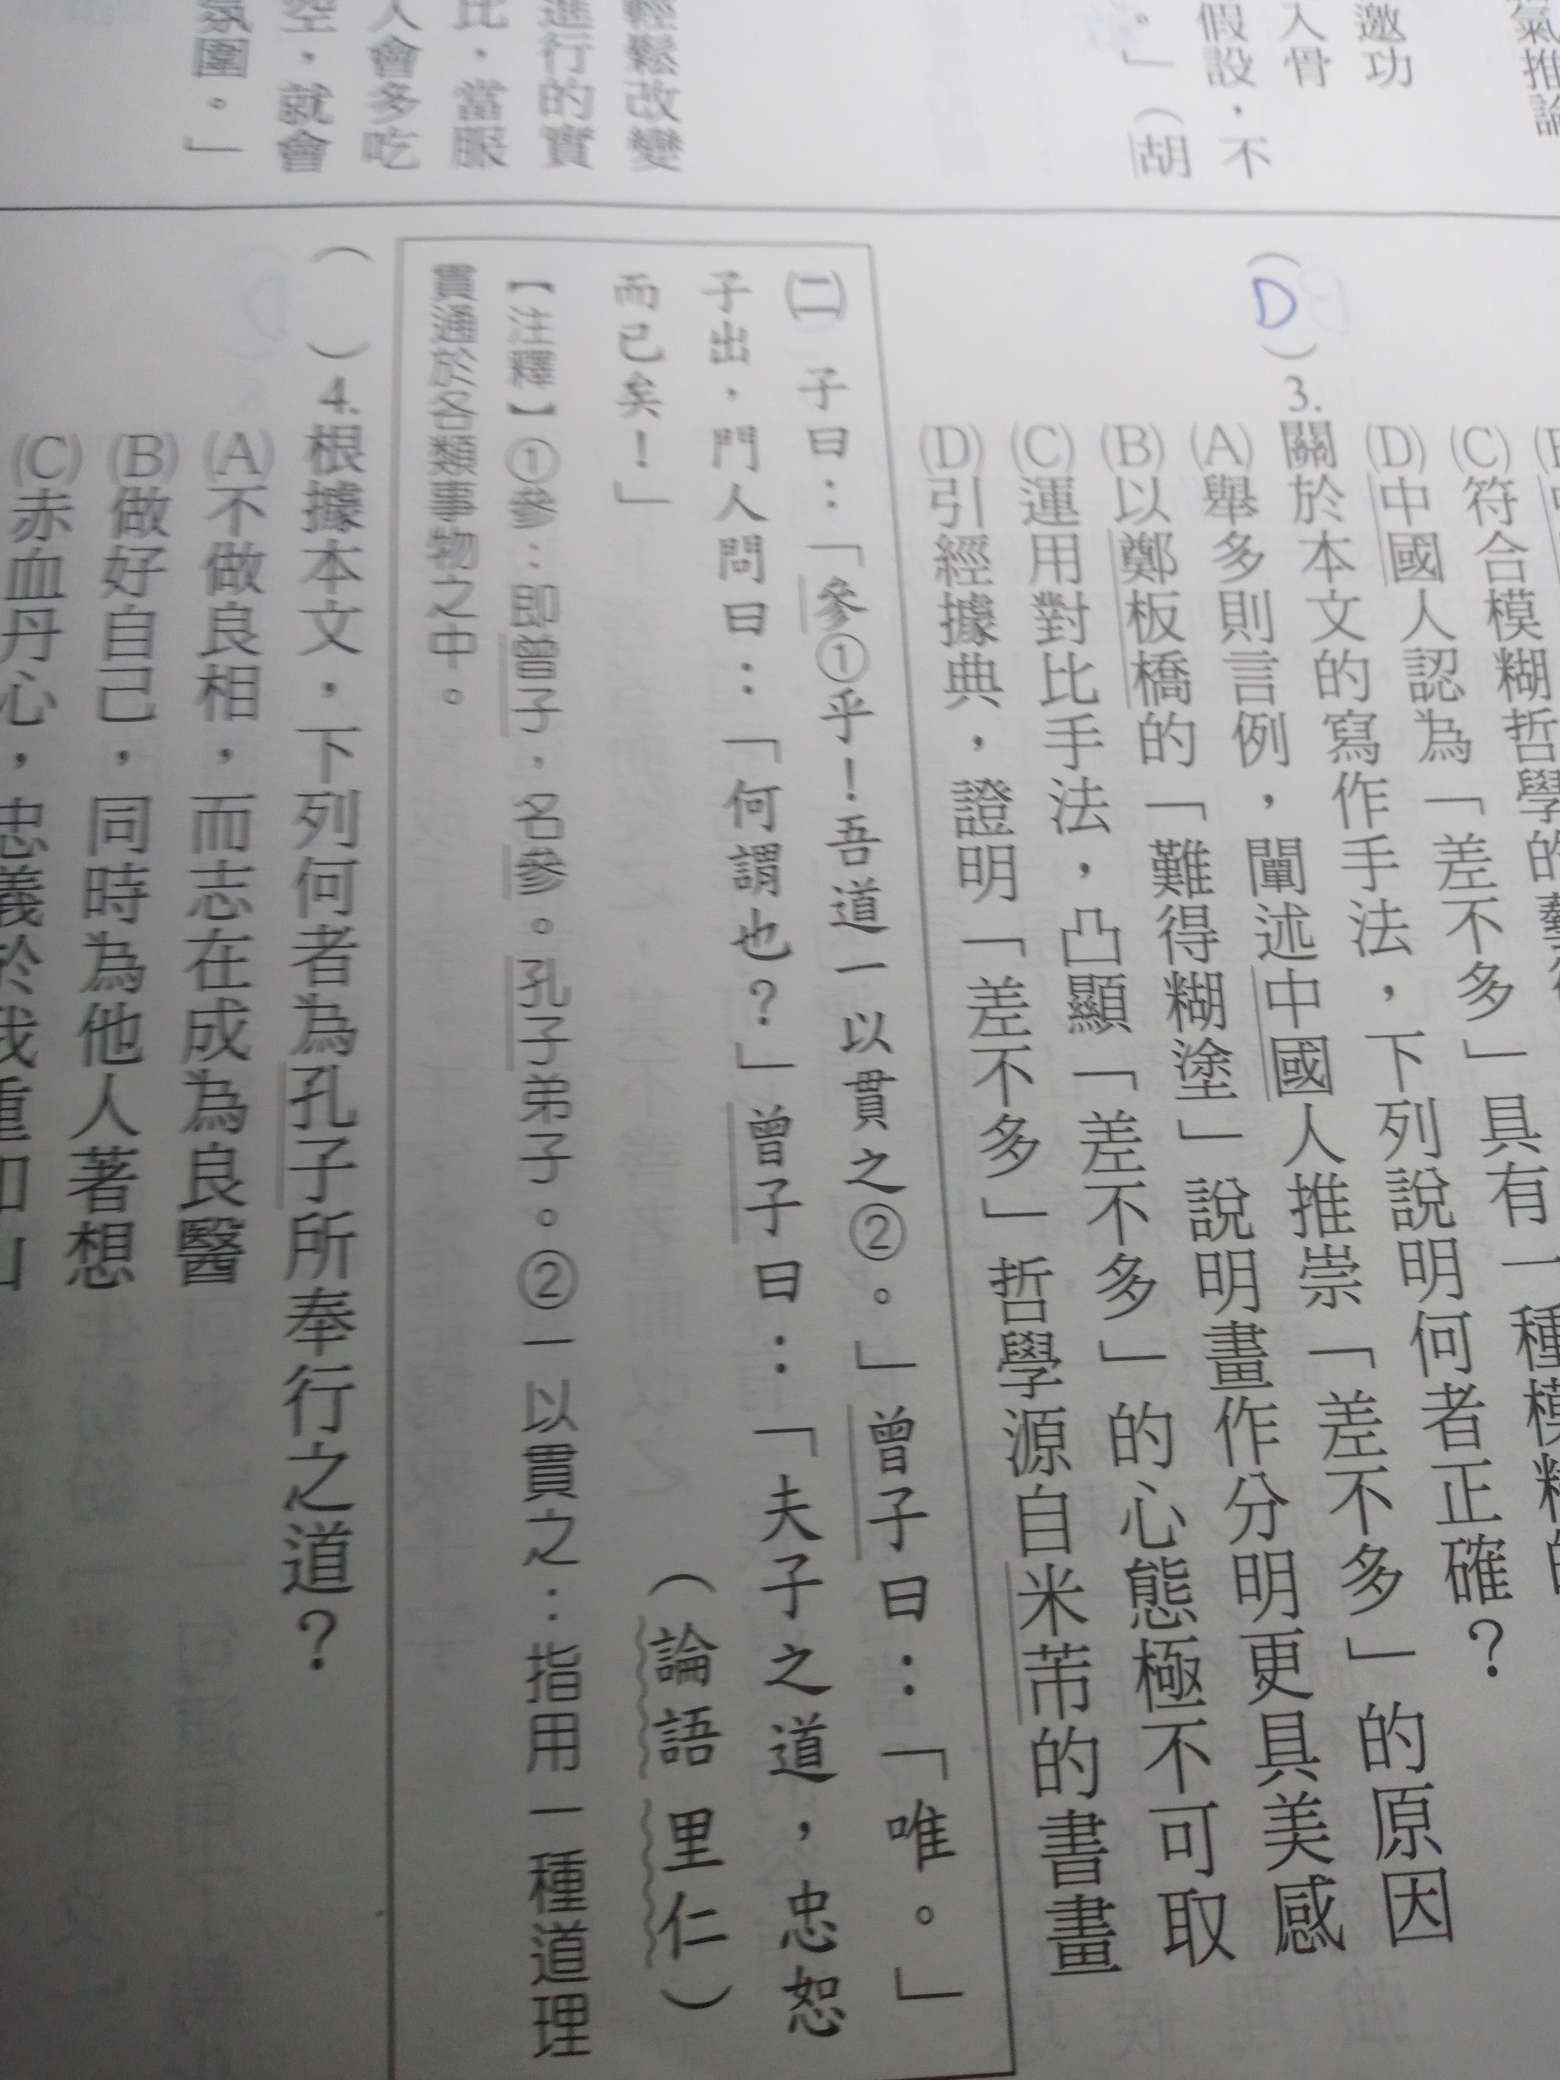 邀功
入骨
假設，不
。」（胡
輕鬆改變
進行的實
比，當服
人會多吃
空，就會
氛圍。」
(C)符合模糊哲學的
(D)中國人認為「差不多」具有一種模糊的
(D)3.關於本文的寫作手法，下列說明何者正確？
(A)舉多則言例，闡述中國人推崇「差不多」的原因
(B)以鄭板橋的「難得糊塗」說明畫作分明更具美感
(C)運用對比手法，凸顯「差不多」的心態極不可取
(D)引經據典，證明「差不多」哲學源自米芾的書畫
㈡子曰：「參①乎！吾道一以貫之②。」曾子曰：「唯。」
子出，門人問曰：「何謂也？」曾子曰：「夫子之道，忠恕
而已矣！」（論語 里仁）
【注釋】①參：即曾子，名參。孔子弟子。②一以貫之：指用一種道理
貫通於各類事物之中。
（ ）4.根據本文，下列何者為孔子所奉行之道？
(A)不做良相，而志在成為良醫
(B)做好自己，同時為他人著想
(C)赤血丹心，忠義於我重如山